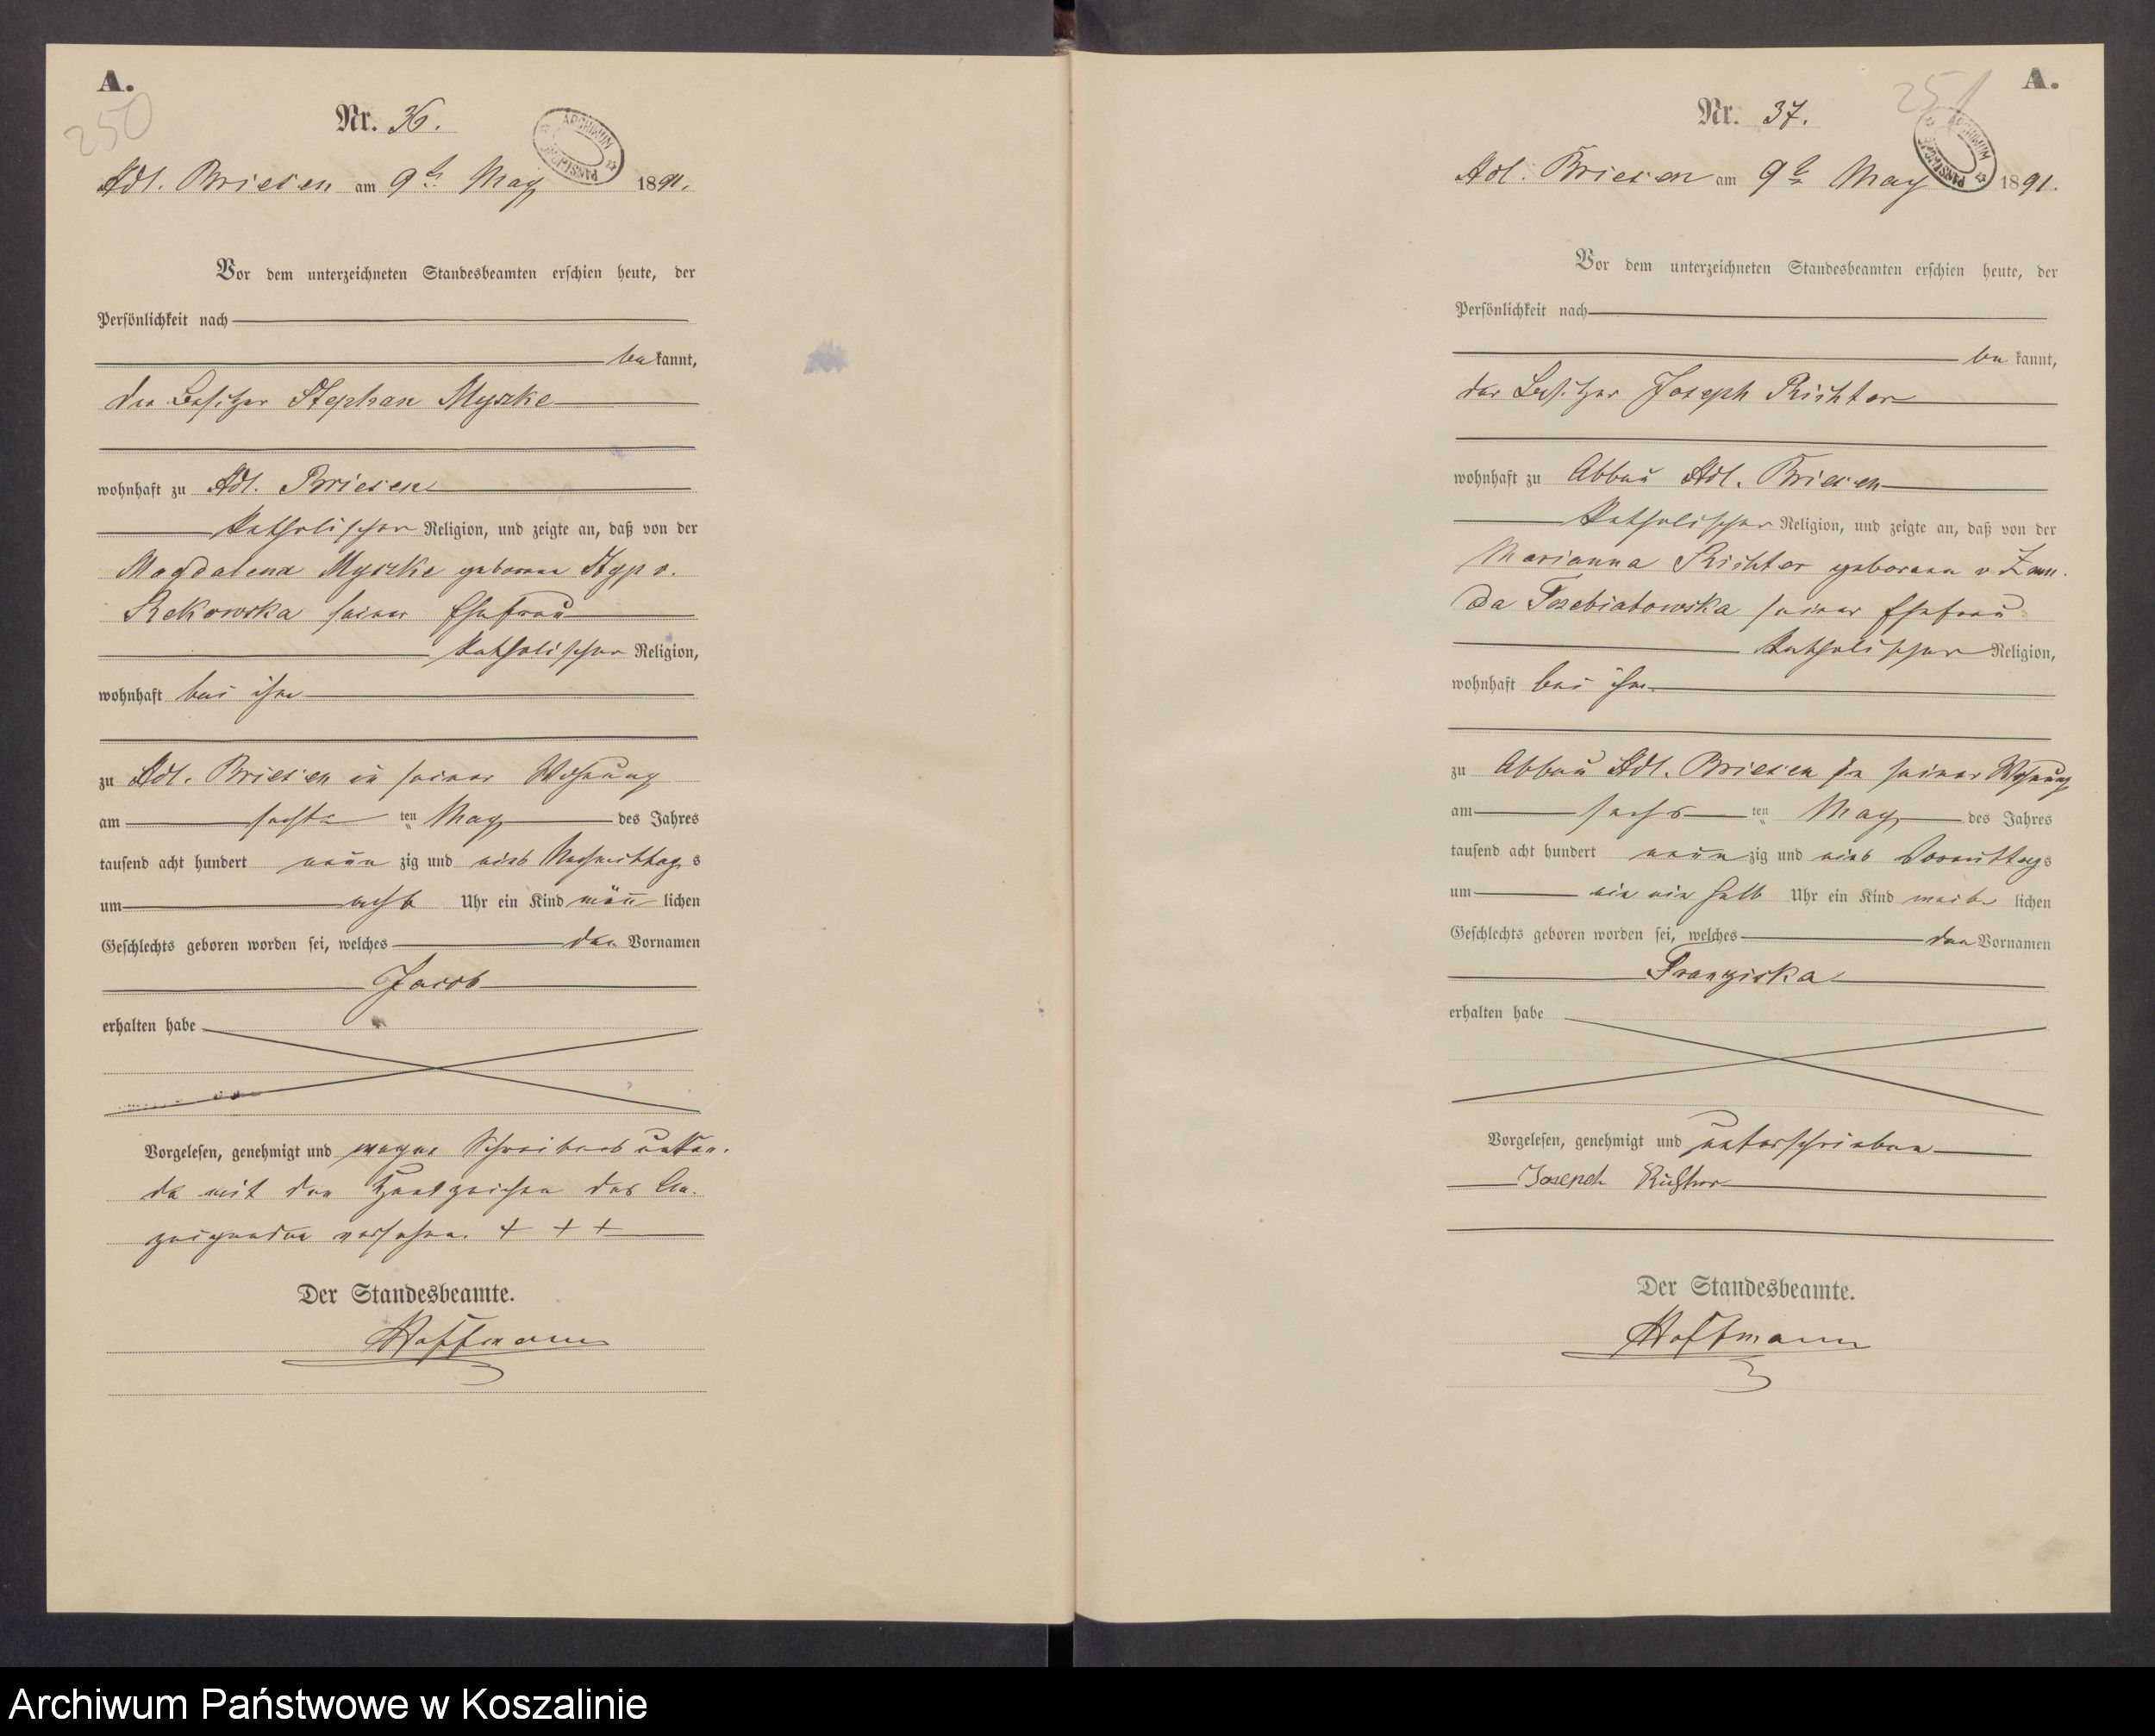 A.
250
Nr. 36.
ARCHIWUM PAŃSTWOWE
Adl. Briesen am 9t May 1891.
Vor dem unterzeichneten Standesbeamten erschien heute, der
Persönlichkeit nach
be kannt,
der Besitzer Stephan Myszke
wohnhaft zu Adl. Briesen
katholischer Religion, und zeigte an, daß von der
Magdalena Myszke geborene Styp v.
Rekowska seiner Ehefrau
katholischer Religion,
wohnhaft bei ihm
zu Adl. Briesen in seiner Wohnung
am sechsten ten May des Jahres
tausend acht hundert neun zig und eins Nachmittag s
um acht Uhr ein Kind männ lichen
Geschlechts geboren worden sei, welches den Vornamen
Jacob
erhalten habe
Vorgelesen, genehmigt und wegen Schreibens unkun-
de mit den Handzeichen des An-
zeigenden versehen + + +
Der Standesbeamte.
Hoffmann
A.
251
Nr. 37.
ARCHIWUM PAŃSTWOWE
Adl. Briesen am 9t May 1891.
Vor dem unterzeichneten Standesbeamten erschien heute, der
Persönlichkeit nach
be kannt,
der Besitzer Joseph Richter
wohnhaft zu Abbau Adl. Briesen
katholischer Religion, und zeigte an, daß von der
Marianna Richter geborene v Zmu.
da Trzebiatowska seiner Ehefrau
katholischer Religion,
wohnhaft bei ihm
zu Abbau Adl. Briesen in seiner Wohnung
am sechs ten May des Jahres
tausend acht hundert neun zig und eins Vormittags
um ein ein halb Uhr ein Kind weib lichen
Geschlechts geboren worden sei, welches den Vornamen
Franziska
erhalten habe
Vorgelesen, genehmigt und unterschrieben
Joseph Richter
Der Standesbeamte.
Hoffmann
Archiwum Państwowe w Koszalinie